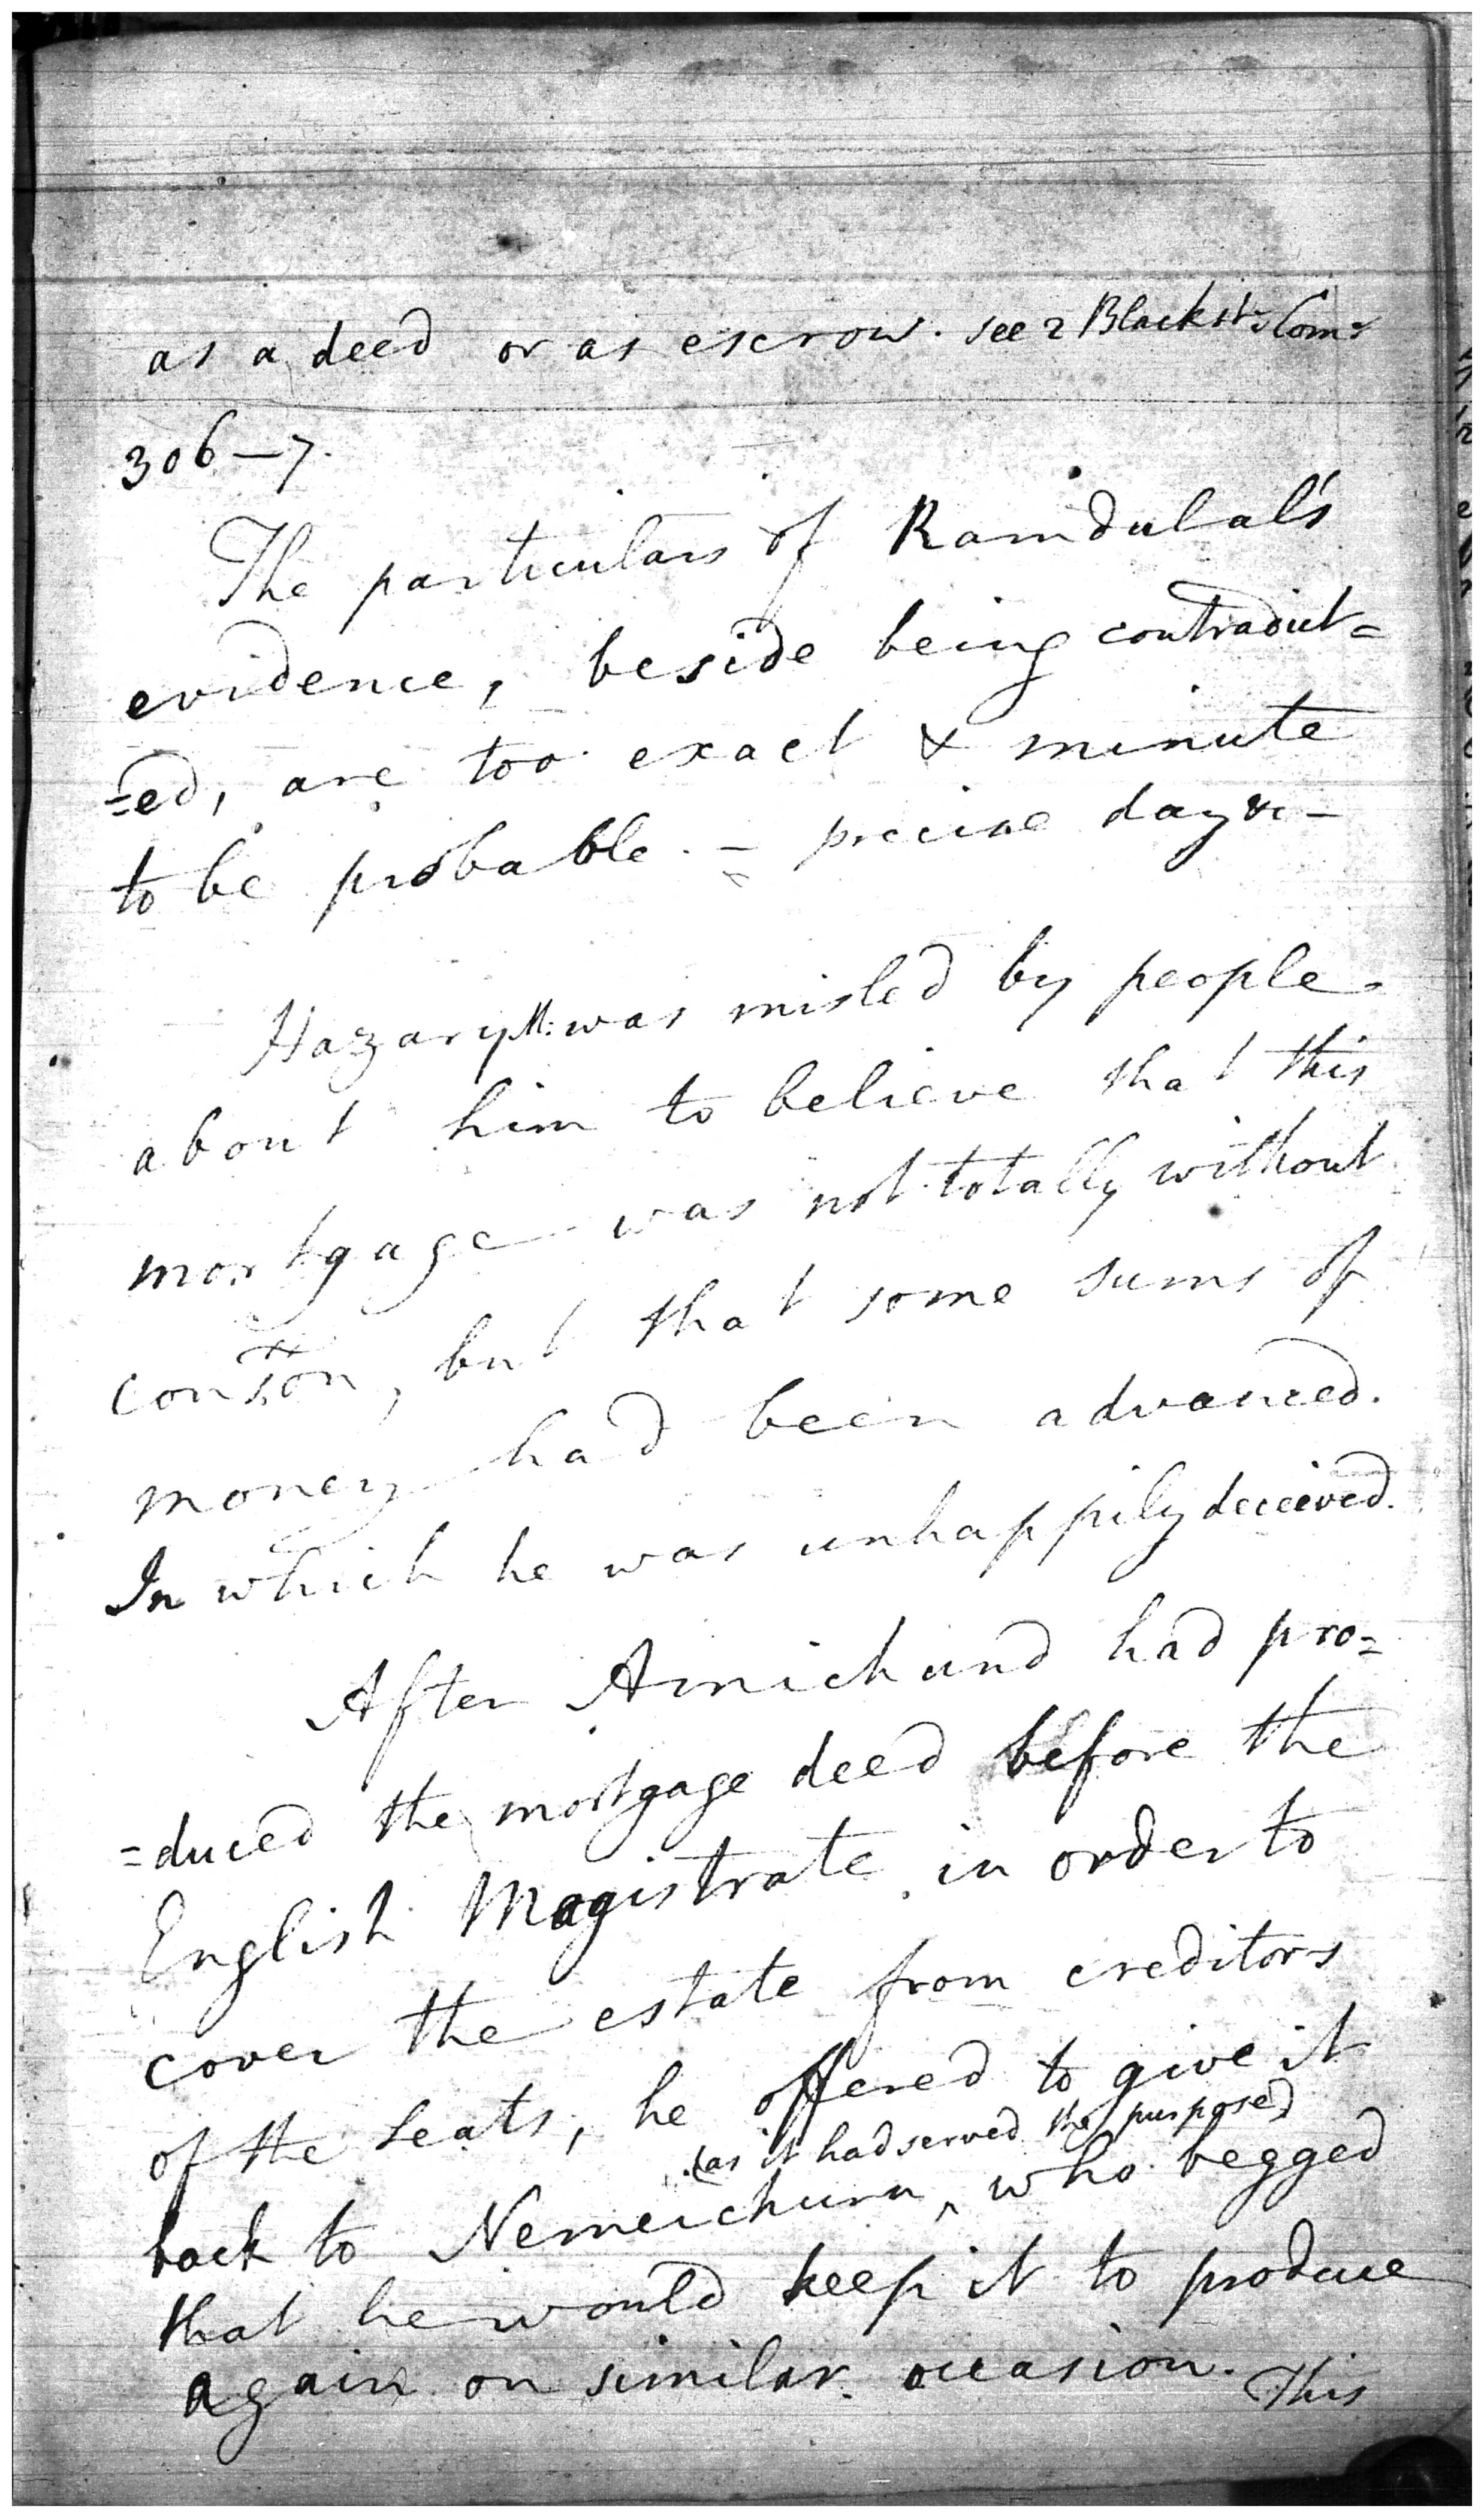 as a deed or as escrow. see 2 Blackst. Com.
306—7.
The particulars of Ramdulal's
evidence, beside being contradict=
=ed, are too exact & minute
to be probable. — precise day &c —
Hazary M: was misled by people
about him to believe that this
mortgage was not totally without
conson, but that some sums of
money had been advanced.
In which he was unhappily deceived.
After Amichund had pro=
=duced the mortgage deed before the
English Magistrate in order to
cover the estate from creditors
of the Seats, he offered to give it
(as it had served the purpose)
back to Nemeichurn, who begged
that he would keep it to produce
again on similar occasion. This